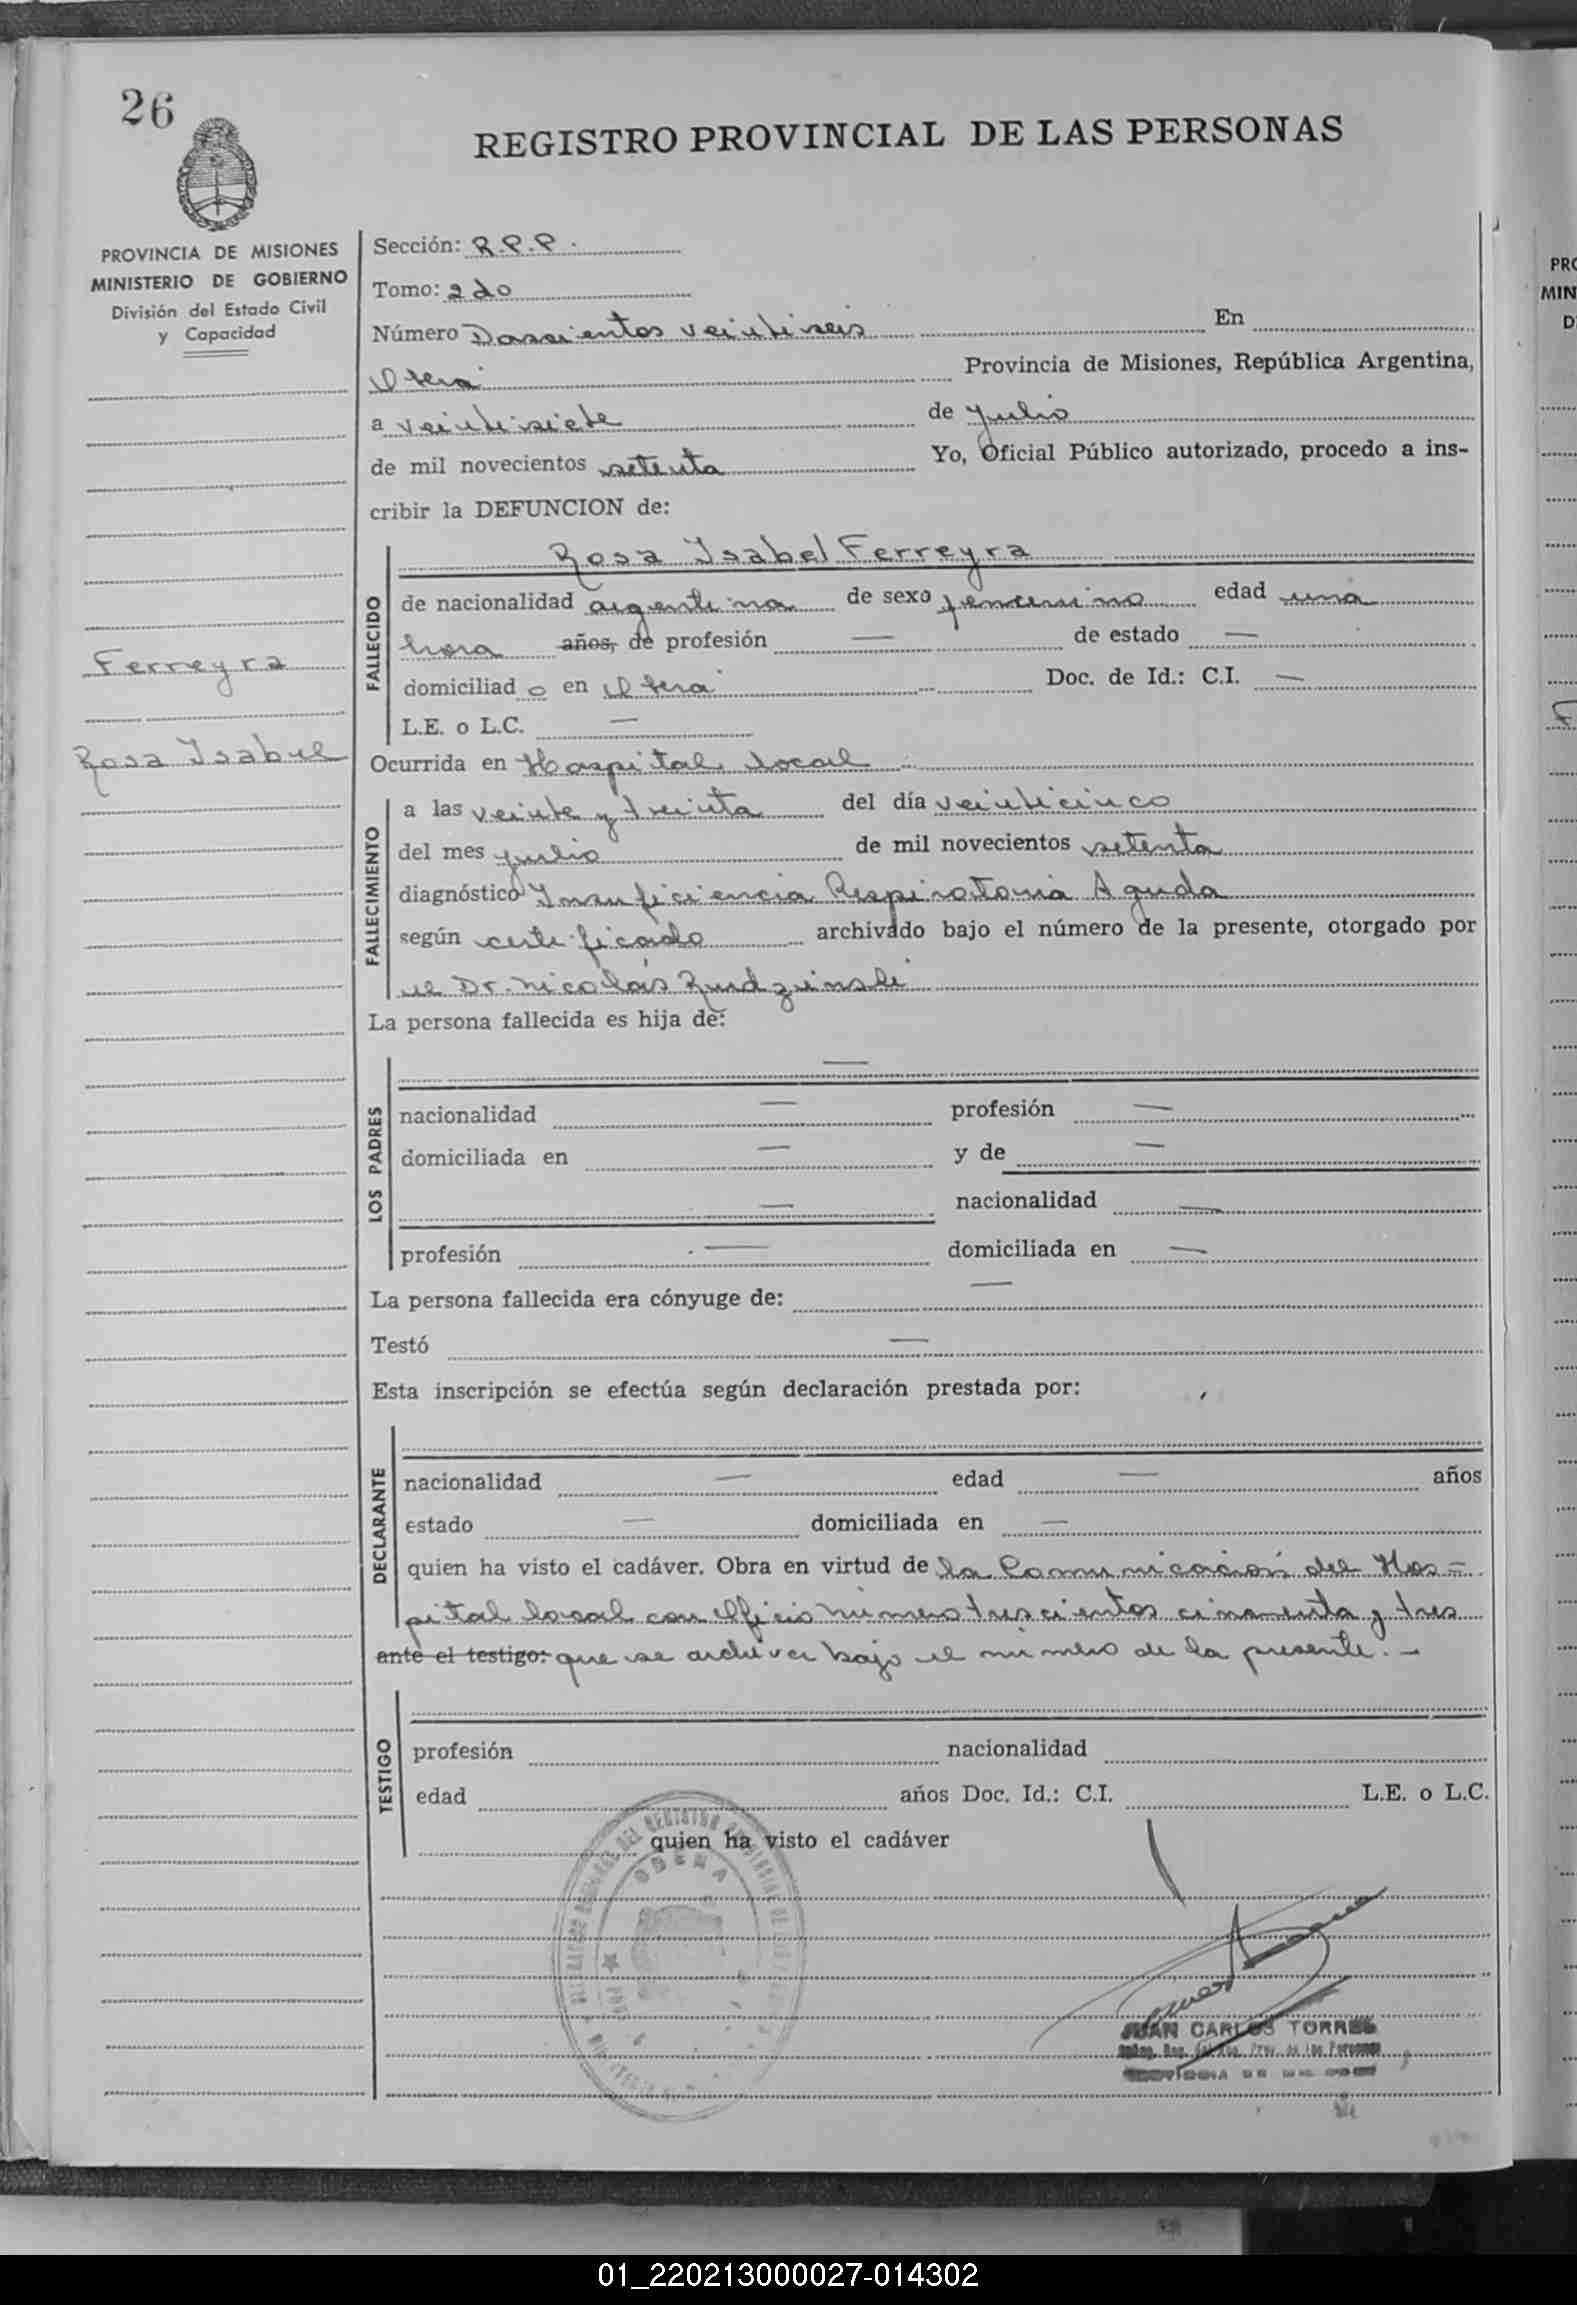 26
REGISTRO PROVINCIAL DE LAS PERSONAS
PROVINCIA DE MISIONES
MINISTERIO DE GOBIERNO
División del Estado Civil
y Capacidad
Ferreyra
Rosa Isabel
Sección: R.P.P.
Tomo: 2do
Número Doscientos veintiseis En
Oberá Provincia de Misiones, República Argentina,
a veintisiete de Julio
de mil novecientos setenta Yo, Oficial Público autorizado, procedo a ins-
cribir la DEFUNCION de:
Rosa Isabel Ferreyra
FALLECIDO
de nacionalidad argentina de sexo femenino edad una
hora años, de profesión — de estado —
domiciliado en Oberá Doc. de Id.: C.I. —
L.E. o L.C. —
Ocurrida en Hospital local
FALLECIMIENTO
a las veinte y treinta del día veinticinco
del mes julio de mil novecientos setenta
diagnóstico Insuficiencia Respiratoria Aguda
según certificado archivado bajo el número de la presente, otorgado por
el Dr. Nicolás Rudzinski
La persona fallecida es hija de:
—
LOS PADRES
nacionalidad — profesión —
domiciliada en — y de —
— nacionalidad —
profesión — domiciliada en —
La persona fallecida era cónyuge de: —
Testó —
Esta inscripción se efectúa según declaración prestada por:
DECLARANTE
nacionalidad — edad — años
estado — domiciliada en —
quien ha visto el cadáver. Obra en virtud de la Comunicación del Hos=
pital local con Oficio número trescientos cincuenta y tres
ante el testigo: que se archiva bajo el número de la presente.—
TESTIGO
profesión nacionalidad
edad años Doc. Id.: C.I. L.E. o L.C.
quien ha visto el cadáver
OBERA
JUAN CARLOS TORRES
01_220213000027-014302